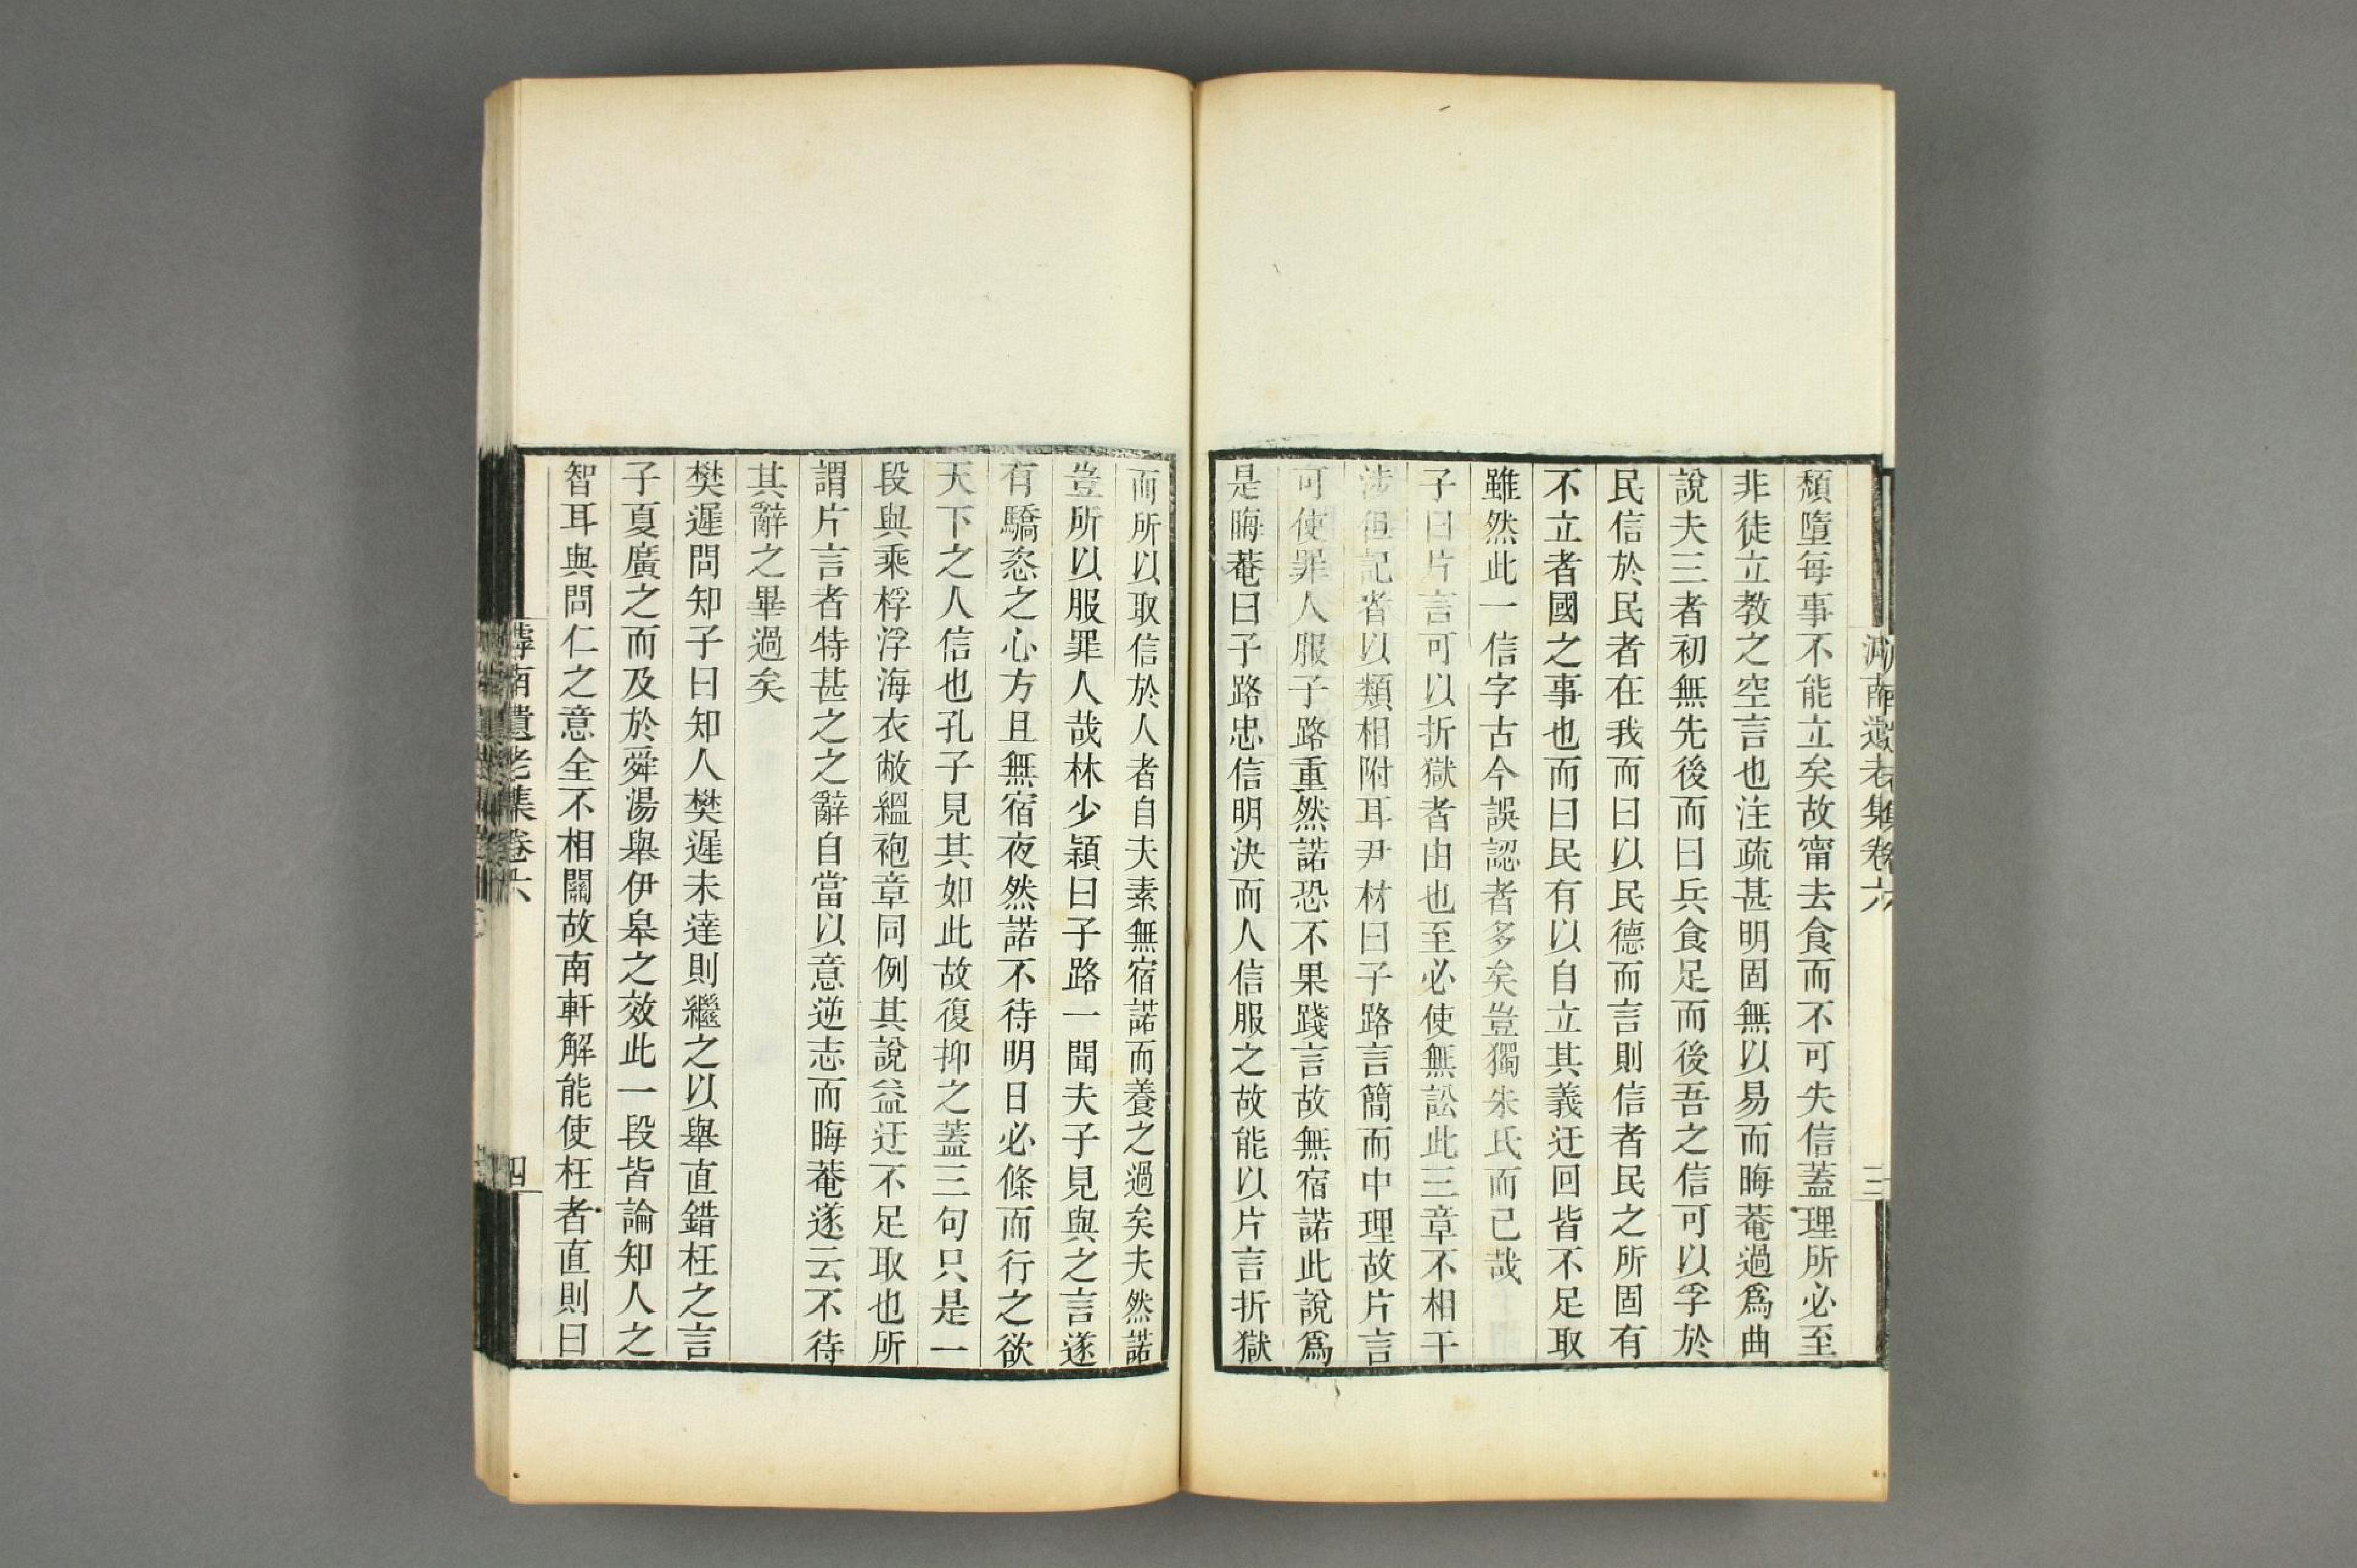 滹南遺老集卷六
三
頽墮每事不能立矣故甯去食而不可失信蓋理所必至
非徒立教之空言也注疏甚明固無以易而晦菴過爲曲
說夫三者初無先後而曰兵食足而後吾之信可以孚於
民信於民者在我而曰以民德而言則信者民之所固有
不立者國之事也而曰民有以自立其義迂回皆不足取
雖然此一信字古今誤認者多矣豈獨朱氏而已哉
子曰片言可以折獄者由也至必使無訟此三章不相干
涉但記者以類相附耳尹材曰子路言簡而中理故片言
可使罪人服子路重然諾恐不果踐言故無宿諾此說爲
是晦菴曰子路忠信明決而人信服之故能以片言折獄
而所以取信於人者自夫素無宿諾而養之過矣夫然諾
豈所以服罪人哉林少穎曰子路一聞夫子見與之言遂
有驕恣之心方且無宿夜然諾不待明日必條而行之欲
天下之人信也孔子見其如此故復抑之蓋三句只是一
段與乘桴浮海衣敝縕袍章同例其說益迂不足取也所
謂片言者特甚之之辭自當以意逆志而晦菴遂云不待
其辭之畢過矣
樊遲問知子曰知人樊遲未達則繼之以舉直錯枉之言
子夏廣之而及於舜湯舉伊皋之效此一段皆論知人之
智耳與問仁之意全不相關故南軒解能使枉者直則曰
滹南遺老集卷六
四